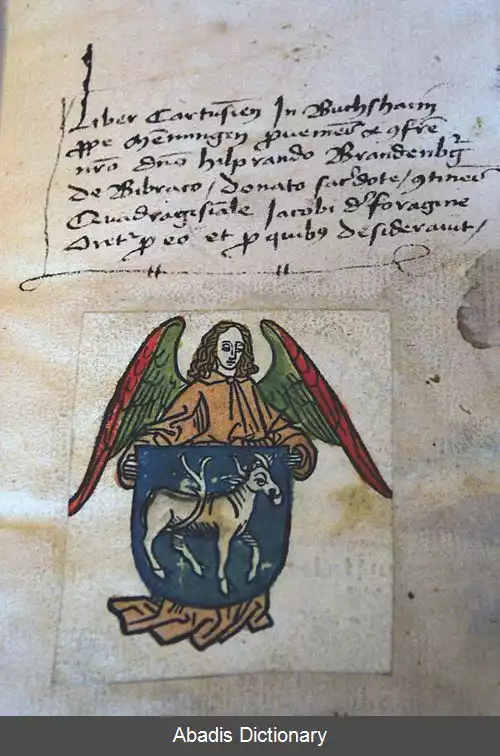 Liber Cartusien̄ In Buchshaim
ꝓpe Mēmingen ꝓueniēs a ꝯfrē
nr̄o dn̄o hilprando Brandenbḡ
de Bibraco / donato sac̄dote / ꝯtinēs
Quadragesīale Jacobi de foragine
Oret᷑ ꝓ eo et ꝓ quibꝰ desiderauit /
Abadis Dictionary